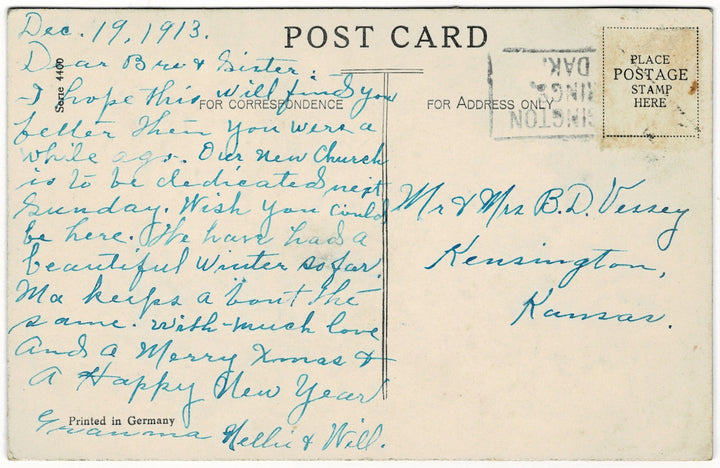 Dec. 19, 1913.
POST CARD
Dear Bro & Sister:
I hope this will find you
better then you were a
while ago. Our new Church
is to be dedicated next
Sunday. Wish you could
be here. We have had a
beautiful winter so far.
Ma keeps a bout the
same. With-much love
and a Merry Xmas &
A Happy New Year
Nellie & Will.
Serie 4400
FOR CORRESPONDENCE
FOR ADDRESS ONLY
Printed in Germany
PLACE
POSTAGE
STAMP
HERE
NGTON
RINGS,
DAK.
Mr & Mrs B.D. Vessey
Kensington,
Kansas.